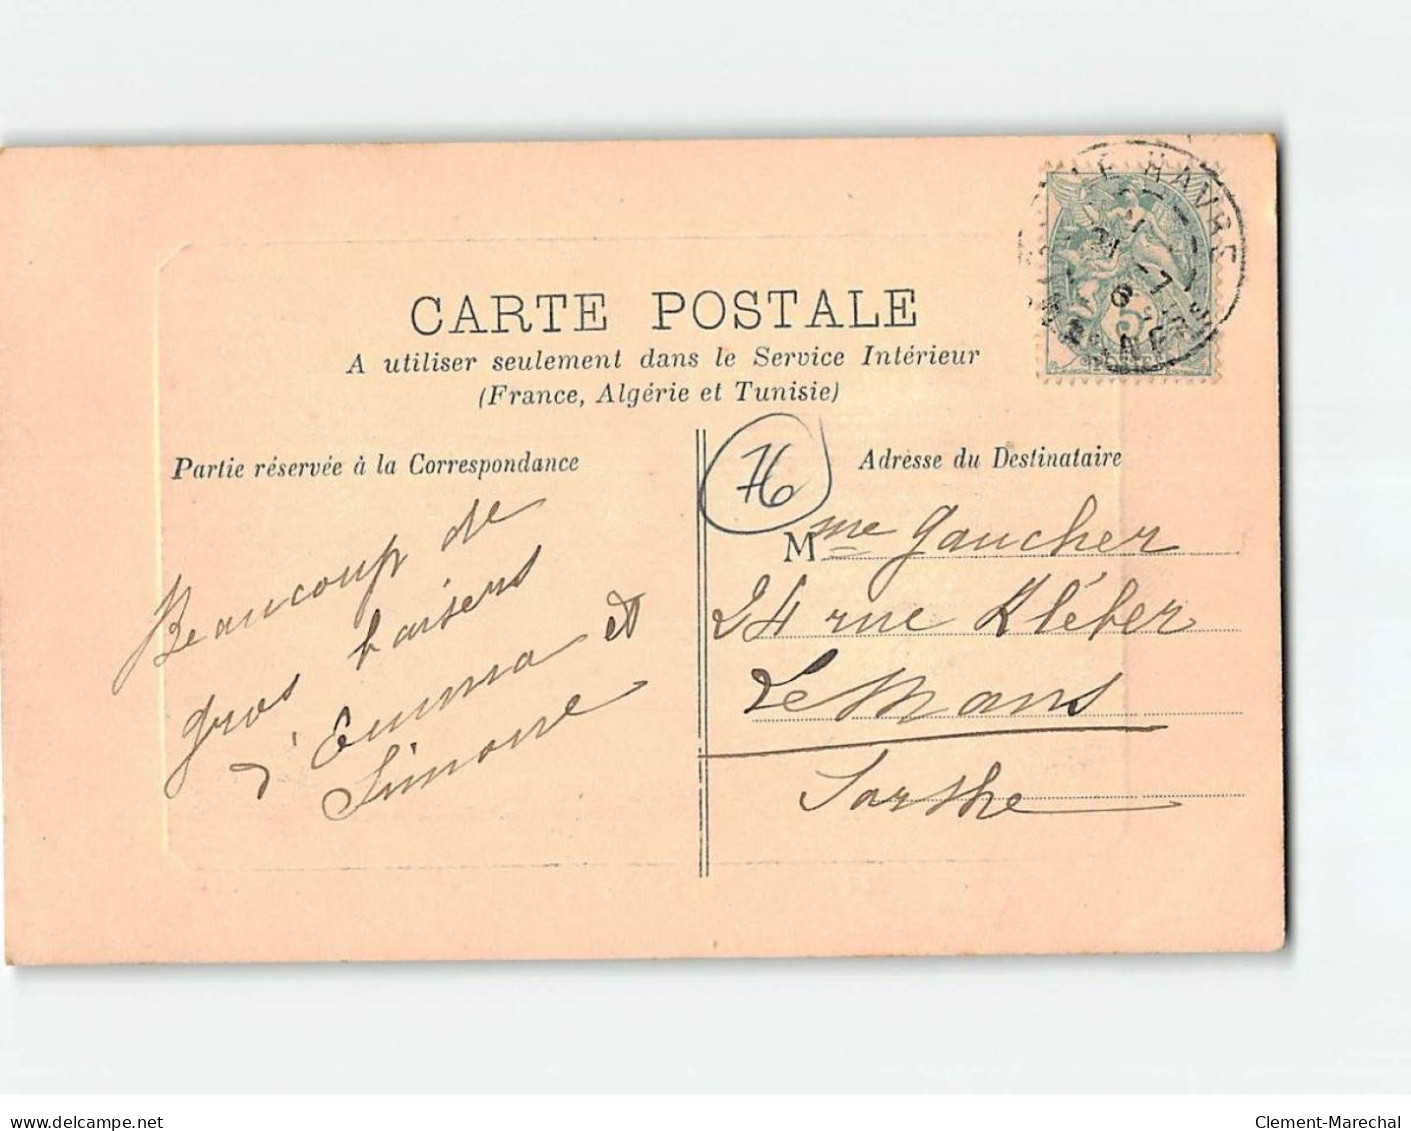 CARTE POSTALE
A utiliser seulement dans le Service Intérieur
(France, Algérie et Tunisie)
Partie réservée à la Correspondance
Beaucoup de
gros baisers
d'Emma et
Simone
76
Adresse du Destinataire
Mme Gaucher
24 rue Kléber
Le Mans
Sarthe
LE HAVRE
5
POSTES
www.delcampe.net
Clement-Marechal